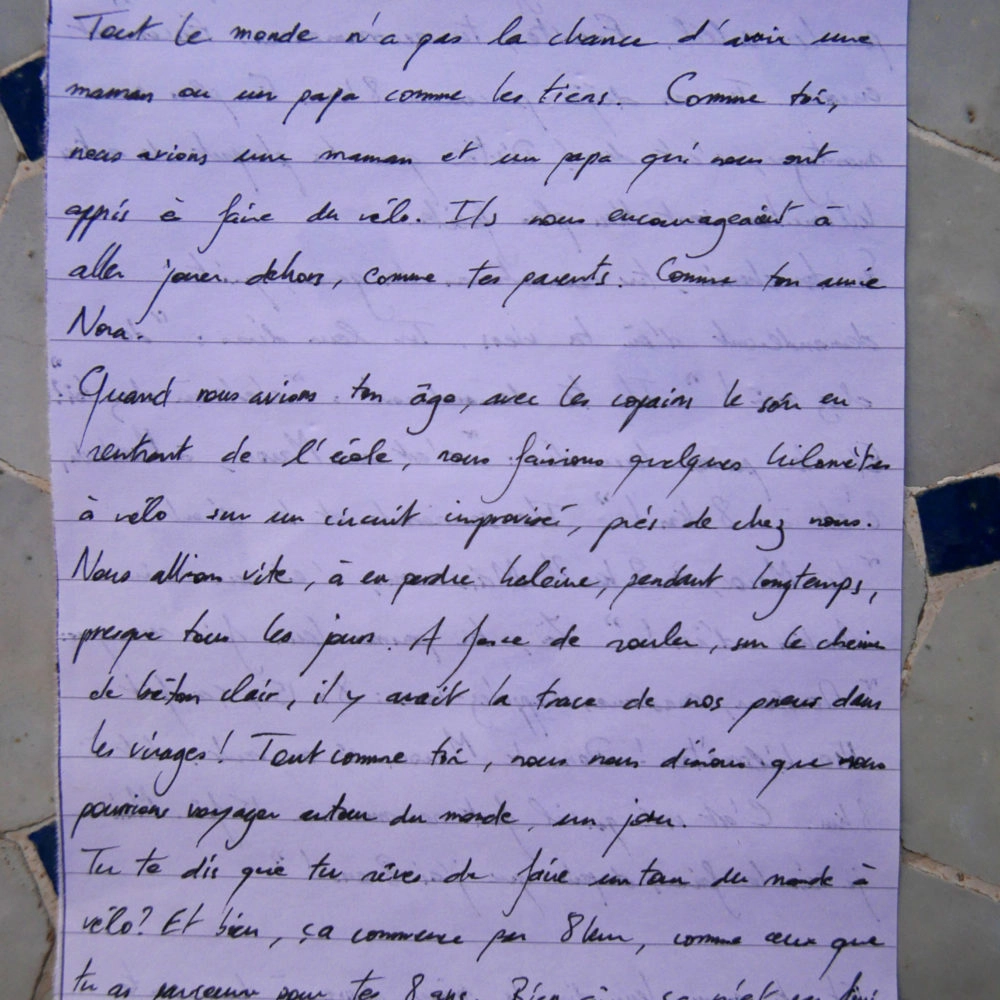 Tout le monde n'a pas la chance d'avoir une
maman ou un papa comme les tiens. Comme toi,
nous avions une maman et un papa qui nous ont
appris à faire du vélo. Ils nous encourageaient à
aller jouer dehors, comme tes parents. Comme ton amie
Nora.
Quand nous avions ton âge, avec les copains le soir en
rentrant de l'école, nous faisions quelques kilomètres
à vélo sur un circuit improvisé, près de chez nous.
Nous allions vite, à en perdre haleine, pendant longtemps,
presque tous les jours. A force de rouler, sur le chemin
de béton clair, il y avait la trace de nos pneus dans
les virages! Tout comme toi, nous nous disions que nous
pourrions voyager autour du monde, un jour.
Tu te dis que tu rêves de faire un tour du monde à
vélo? Et bien, ça commence par 8 km, comme ceux que
tu as parcouru pour tes 8 ans. Bien